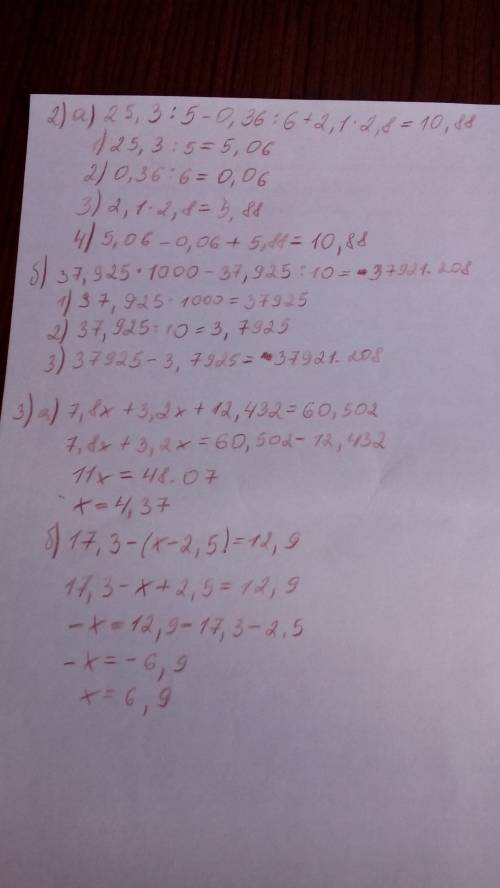 2) а) 25,3:5-0,36:6+2,1·2,8=10,88
1) 25,3:5=5,06
2) 0,36:6=0,06
3) 2,1·2,8=5,88
4) 5,06-0,06+5,88=10,88
б) 37,925·1000-37,925:10=37921.208
1) 37,925·1000=37925
2) 37,925:10=3,7925
3) 37925-3,7925=37921.208
3) а) 7,8x+3,2x+12,432=60,502
7,8x+3,2x=60,502-12,432
11x=48.07
x=4,37
б) 17,3-(x-2,5)=12,9
17,3-x+2,5=12,9
-x=12,9-17,3-2.5
-x=-6,9
x=6,9